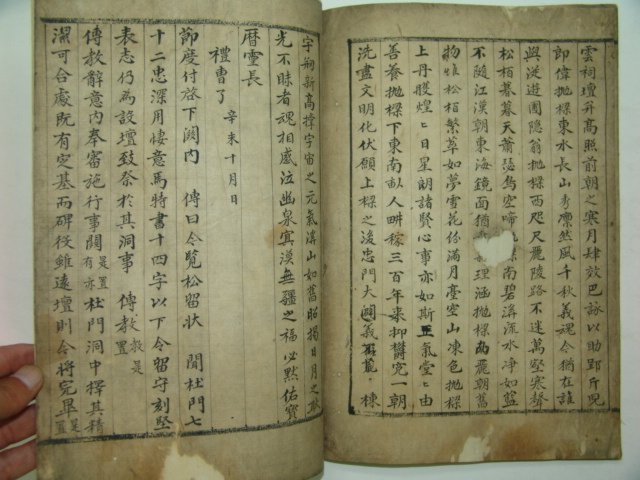 雲祠壇升高照前朝之寒月肆效巴詠以助郢斤兒
郎偉抛樑東水長山秀凜然風千秋義魂今猶在誰
與從遊圃隱翁抛樑西咫尺麗陵路不迷萬壑寒聲
松栢暮暮天蕭瑟鳥空啼抛樑南碧潯流水净如藍
不随江漢朝東海鏡面猶理涵抛樑北麗朝舊
物惟松栢繁草如夢雪花份滿月臺空山凍色抛樑
上丹衷煌〻日星朗諸賢心事亦如斯正氣堂〻由
善養抛樑下東南畝人畊稼三百年來抑欝寃一朝
洗盡文明化伏願上樑之後忠門大闢義石龍棟
宇朔新高撑宇宙之元氣潯山如舊昭揭日月之
光不昧者魂相感泣幽泉寞漠無疆之福必黙佑寳
曆靈長
禮曹了 辛未十月日
節度付啓下闕內 傳曰令覧松留状 聞杜門七
十二忠深用悽意馬特書十四字以下令留守刻竪
表志仍為設壇致祭於其洞事 傳教教是置
傳教辭意內奉審施行事關是置有亦杜門洞中擇其精
潔可合處既有定基而碑役雖遠壇則令將完畢是置